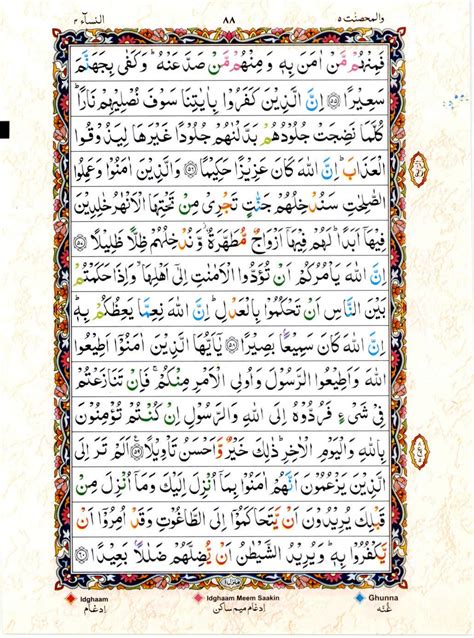 والمحصنت ٥ ٨٨ النسآء ٤
فَمِنْهُمْ مَّنْ اٰمَنَ بِهٖ وَمِنْهُمْ مَّنْ صَدَّ عَنْهُ ؕ وَكَفٰى بِجَهَنَّمَ
سَعِيْرًا ۝٥٥ اِنَّ الَّذِيْنَ كَفَرُوْا بِاٰيٰتِنَا سَوْفَ نُصْلِيْهِمْ نَارًا ؕ
كُلَّمَا نَضِجَتْ جُلُوْدُهُمْ بَدَّلْنٰهُمْ جُلُوْدًا غَيْرَهَا لِيَذُوْقُوا
الْعَذَابَ ؕ اِنَّ اللّٰهَ كَانَ عَزِيْزًا حَكِيْمًا ۝٥٦ وَالَّذِيْنَ اٰمَنُوْا وَعَمِلُوا
الصّٰلِحٰتِ سَنُدْخِلُهُمْ جَنّٰتٍ تَجْرِيْ مِنْ تَحْتِهَا الْاَنْهٰرُ خٰلِدِيْنَ
فِيْهَاۤ اَبَدًا ؕ لَهُمْ فِيْهَاۤ اَزْوَاجٌ مُّطَهَّرَةٌ ؗ وَّنُدْخِلُهُمْ ظِلًّا ظَلِيْلًا ۝٥٧
اِنَّ اللّٰهَ يَاْمُرُكُمْ اَنْ تُؤَدُّوا الْاَمٰنٰتِ اِلٰٓى اَهْلِهَا ۙ وَاِذَا حَكَمْتُمْ
بَيْنَ النَّاسِ اَنْ تَحْكُمُوْا بِالْعَدْلِ ؕ اِنَّ اللّٰهَ نِعِمَّا يَعِظُكُمْ بِهٖ ؕ
اِنَّ اللّٰهَ كَانَ سَمِيْعًۢا بَصِيْرًا ۝٥٨ يٰۤاَيُّهَا الَّذِيْنَ اٰمَنُوْۤا اَطِيْعُوا
اللّٰهَ وَاَطِيْعُوا الرَّسُوْلَ وَاُولِي الْاَمْرِ مِنْكُمْ ۚ فَاِنْ تَنَازَعْتُمْ
فِيْ شَيْءٍ فَرُدُّوْهُ اِلَى اللّٰهِ وَالرَّسُوْلِ اِنْ كُنْتُمْ تُؤْمِنُوْنَ
بِاللّٰهِ وَالْيَوْمِ الْاٰخِرِ ؕ ذٰلِكَ خَيْرٌ وَّاَحْسَنُ تَاْوِيْلًا ۝٥٩ اَلَمْ تَرَ اِلَى
الَّذِيْنَ يَزْعُمُوْنَ اَنَّهُمْ اٰمَنُوْا بِمَاۤ اُنْزِلَ اِلَيْكَ وَمَاۤ اُنْزِلَ مِنْ
قَبْلِكَ يُرِيْدُوْنَ اَنْ يَّتَحَاكَمُوْۤا اِلَى الطَّاغُوْتِ وَقَدْ اُمِرُوْۤا اَنْ
يَّكْفُرُوْا بِهٖ ؕ وَيُرِيْدُ الشَّيْطٰنُ اَنْ يُّضِلَّهُمْ ضَلٰلًۢا بَعِيْدًا ۝٦٠
Idghaam Idghaam Meem Saakin Ghunna
ادغام ادغام میم ساکن غنّه